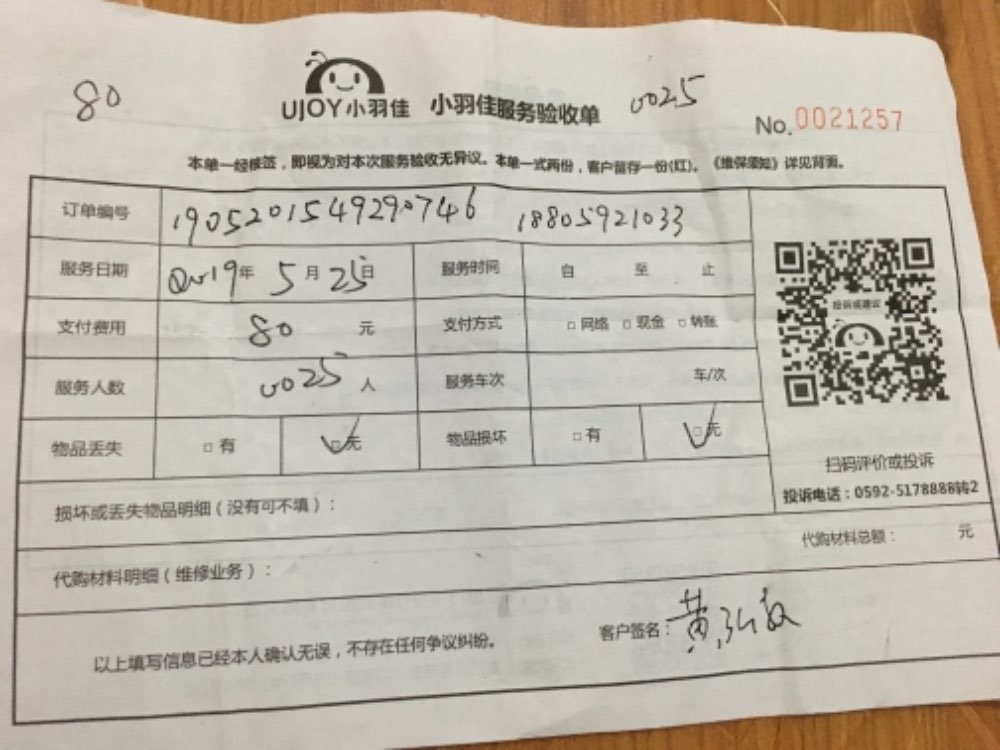 80
UJOY小羽佳 小羽佳服务验收单 0025
No.0021257
本单一经核签，即视为对本次服务验收无异议。本单一式两份，客户留存一份(红)。《维保须知》详见背面。
订单编号 1905201549290746 18805921033
服务日期 2019年 5月25日 服务时间 自 至 止
支付费用 80 元 支付方式 □网络 □现金 □转账
服务人数 0025 人 服务车次 车/次
物品丢失 □有 ☑无 物品损坏 □有 ☑无
投诉或建议
扫码评价或投诉
投诉电话：0592-5178888转2
损坏或丢失物品明细（没有可不填）：
代购材料明细（维修业务）： 代购材料总额： 元
以上填写信息已经本人确认无误，不存在任何争议纠纷。 客户签名：黄